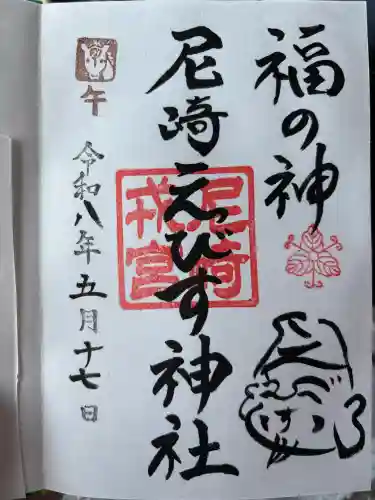 福の神
尼崎えびす神社
尼崎戎宮
午
令和八年五月十七日